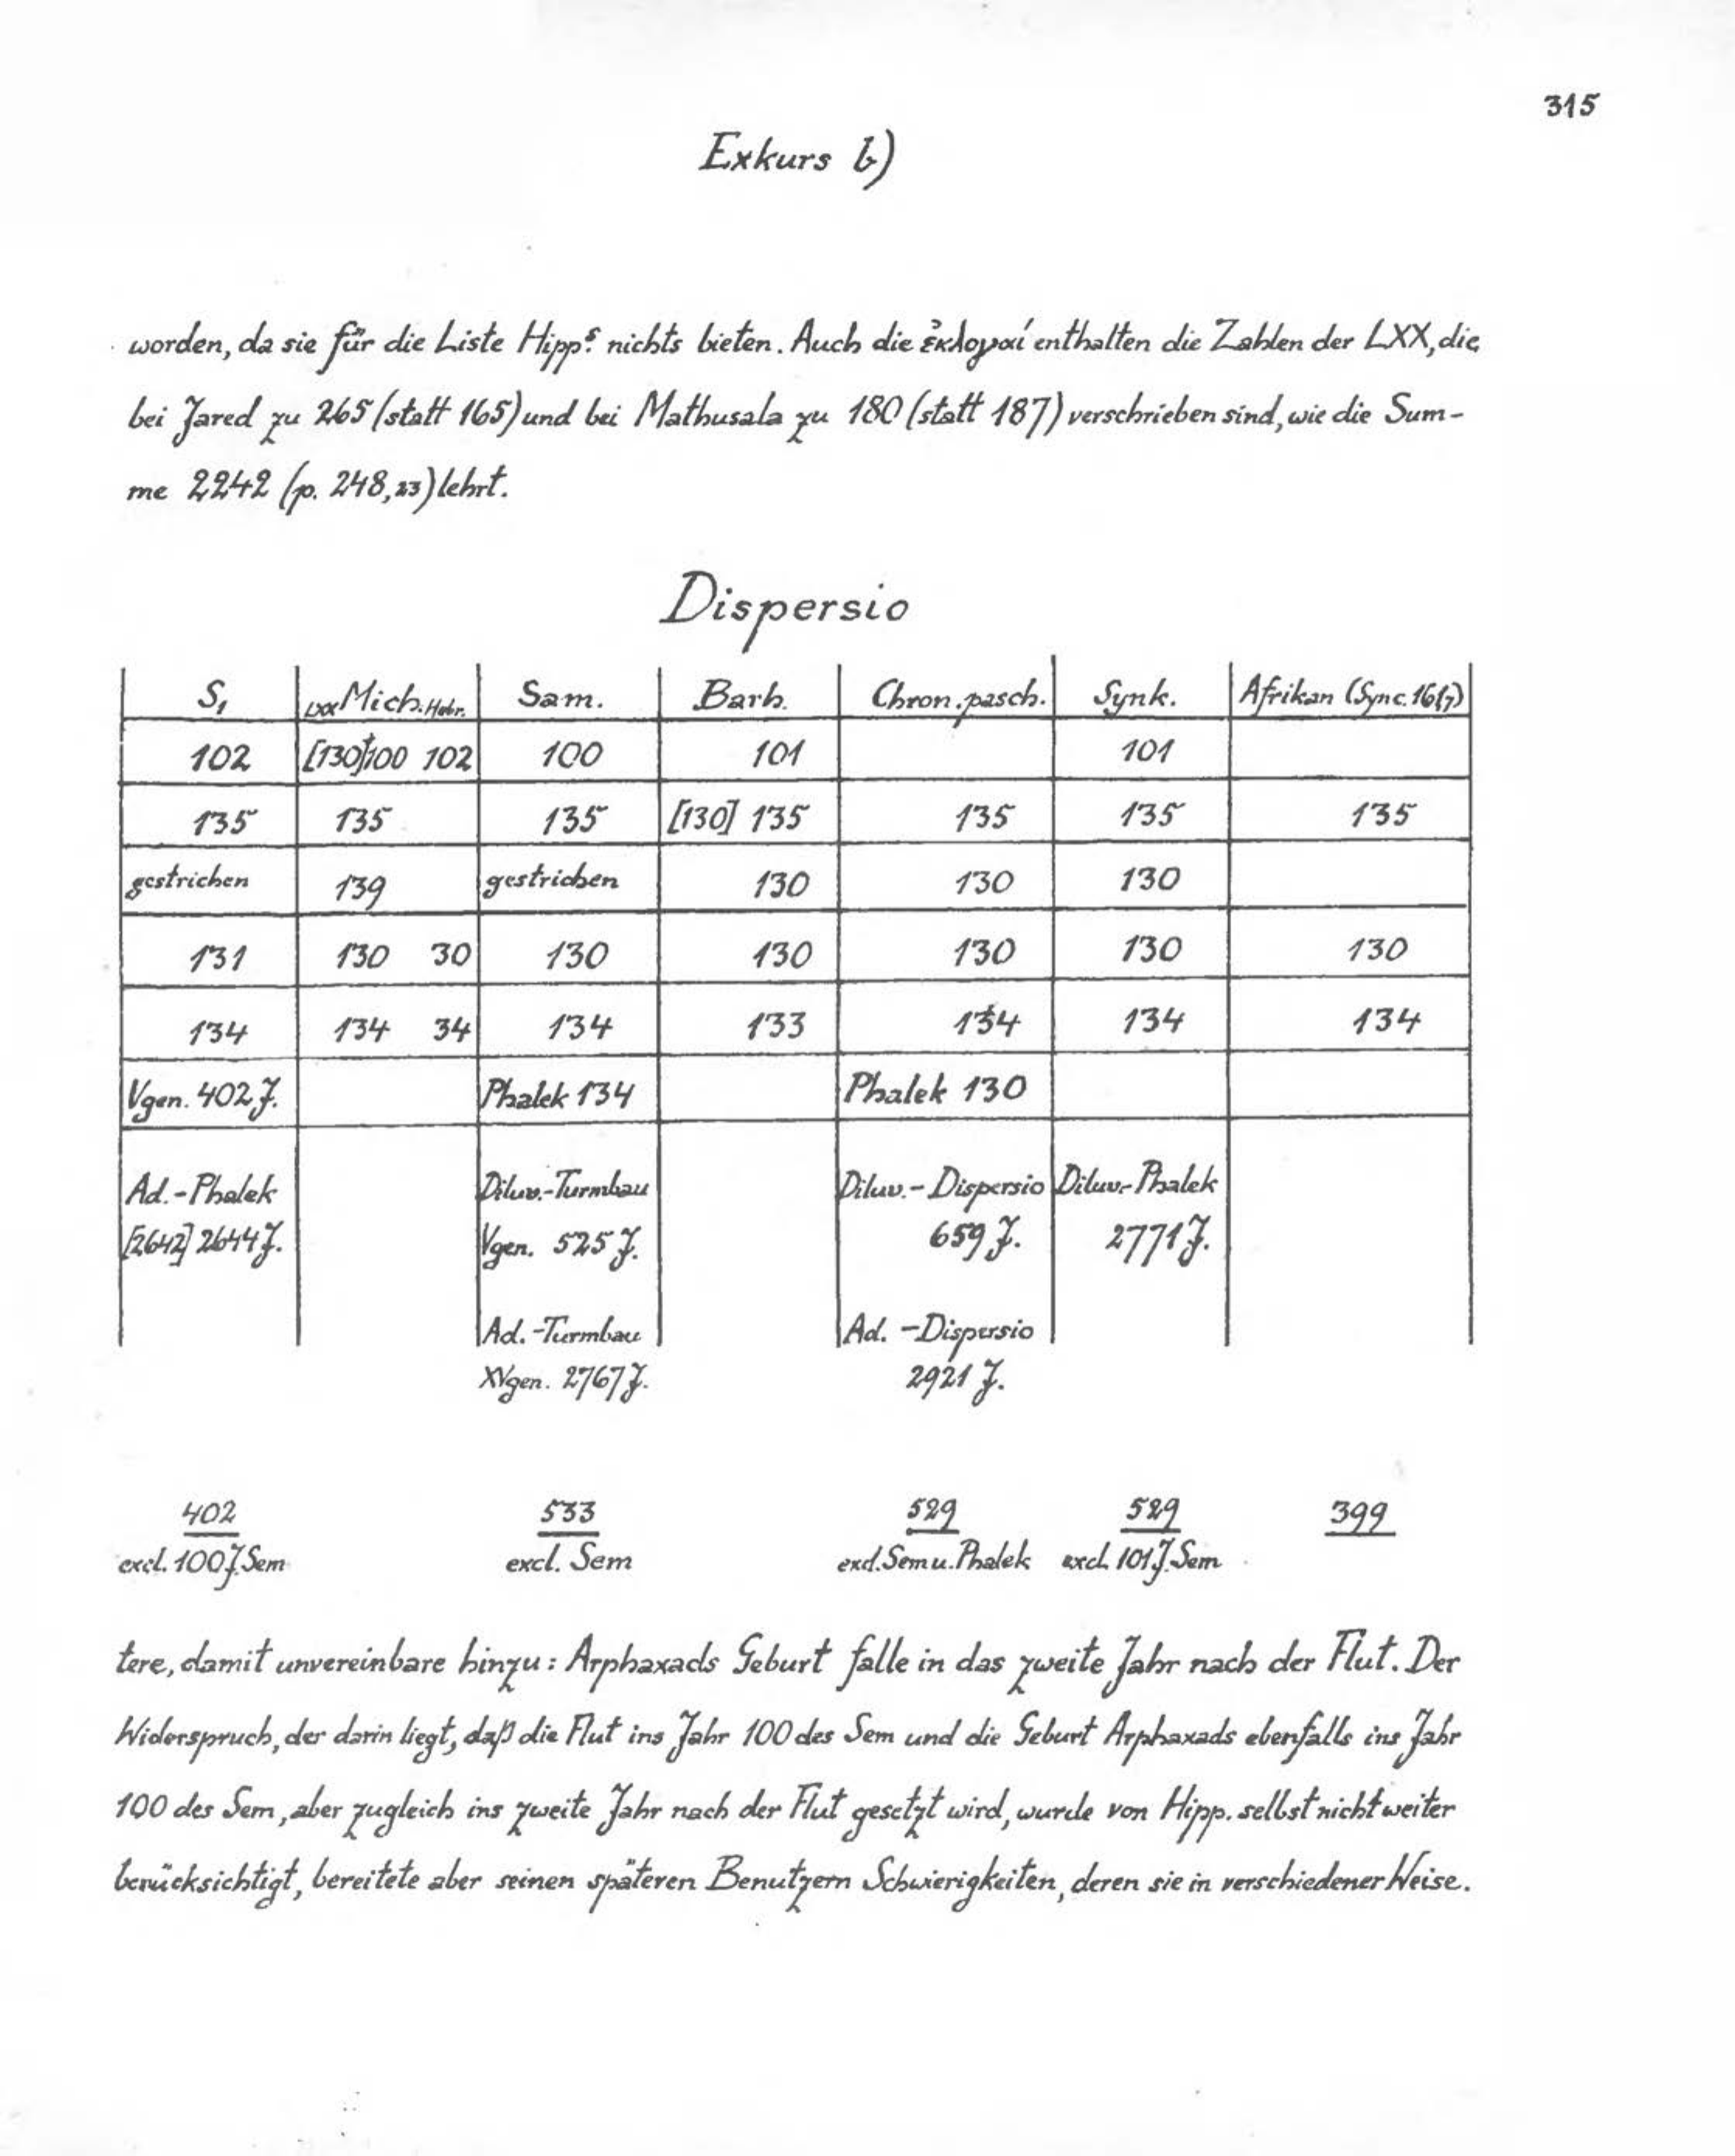 315
Exkurs b)
worden, da sie für die Liste Hipp.s nichts bieten. Auch die ἐκλογαί enthalten die Zahlen der LXX, die
bei Jared zu 265 (statt 165) und bei Mathusala zu 180 (statt 187) verschrieben sind, wie die Sum-
me 2242 (p. 248,23) lehrt.
Dispersio
S₁ LXX Mich. Hebr. Sam. Barb. Chron. pasch. Synk. Afrikan (Sync. 161,7)
102 [130]+100 102 100 101 101
135 135 135 [130] 135 135 135 135
gestrichen 139 gestrichen 130 130 130
131 130 30 130 130 130 130 130
134 134 34 134 133 134 134 134
Vgen. 402 J. Phalek 134 Phalek 130
Ad.-Phalek Diluv.-Turmbau Diluv.-Dispersio Diluv.-Phalek
[2642] 2644 J. Vgen. 525 J. 659 J. 2771 J.
Ad.-Turmbau Ad. -Dispersio
XVgen. 2767 J. 2921 J.
402 533 529 529 399
excl. 100 J. Sem excl. Sem excl. Sem u. Phalek excl. 101 J. Sem
tere, damit unvereinbare hinzu: Arphaxads Geburt falle in das zweite Jahr nach der Flut. Der
Widerspruch, der darin liegt, daß die Flut ins Jahr 100 des Sem und die Geburt Arphaxads ebenfalls ins Jahr
100 des Sem, aber zugleich ins zweite Jahr nach der Flut gesetzt wird, wurde von Hipp. selbst nicht weiter
berücksichtigt, bereitete aber seinen späteren Benutzern Schwierigkeiten, deren sie in verschiedener Weise.